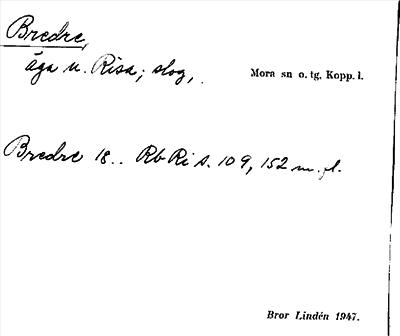 Bredre,
äga u. Risa; slog,.
Mora sn o. tg. Kopp. l.
Bredre 18.. Rb Ri s. 109, 152 m. fl.
Bror Lindén 1947.